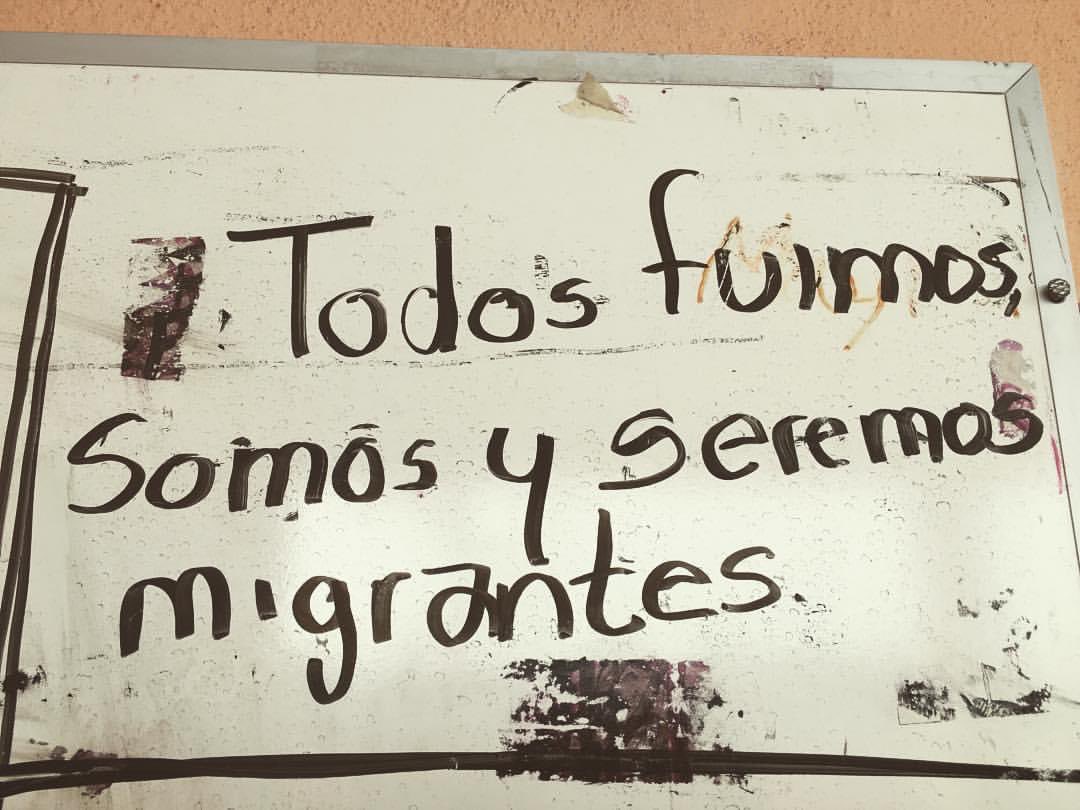 Todos fuimos,
Somos y seremos
migrantes.